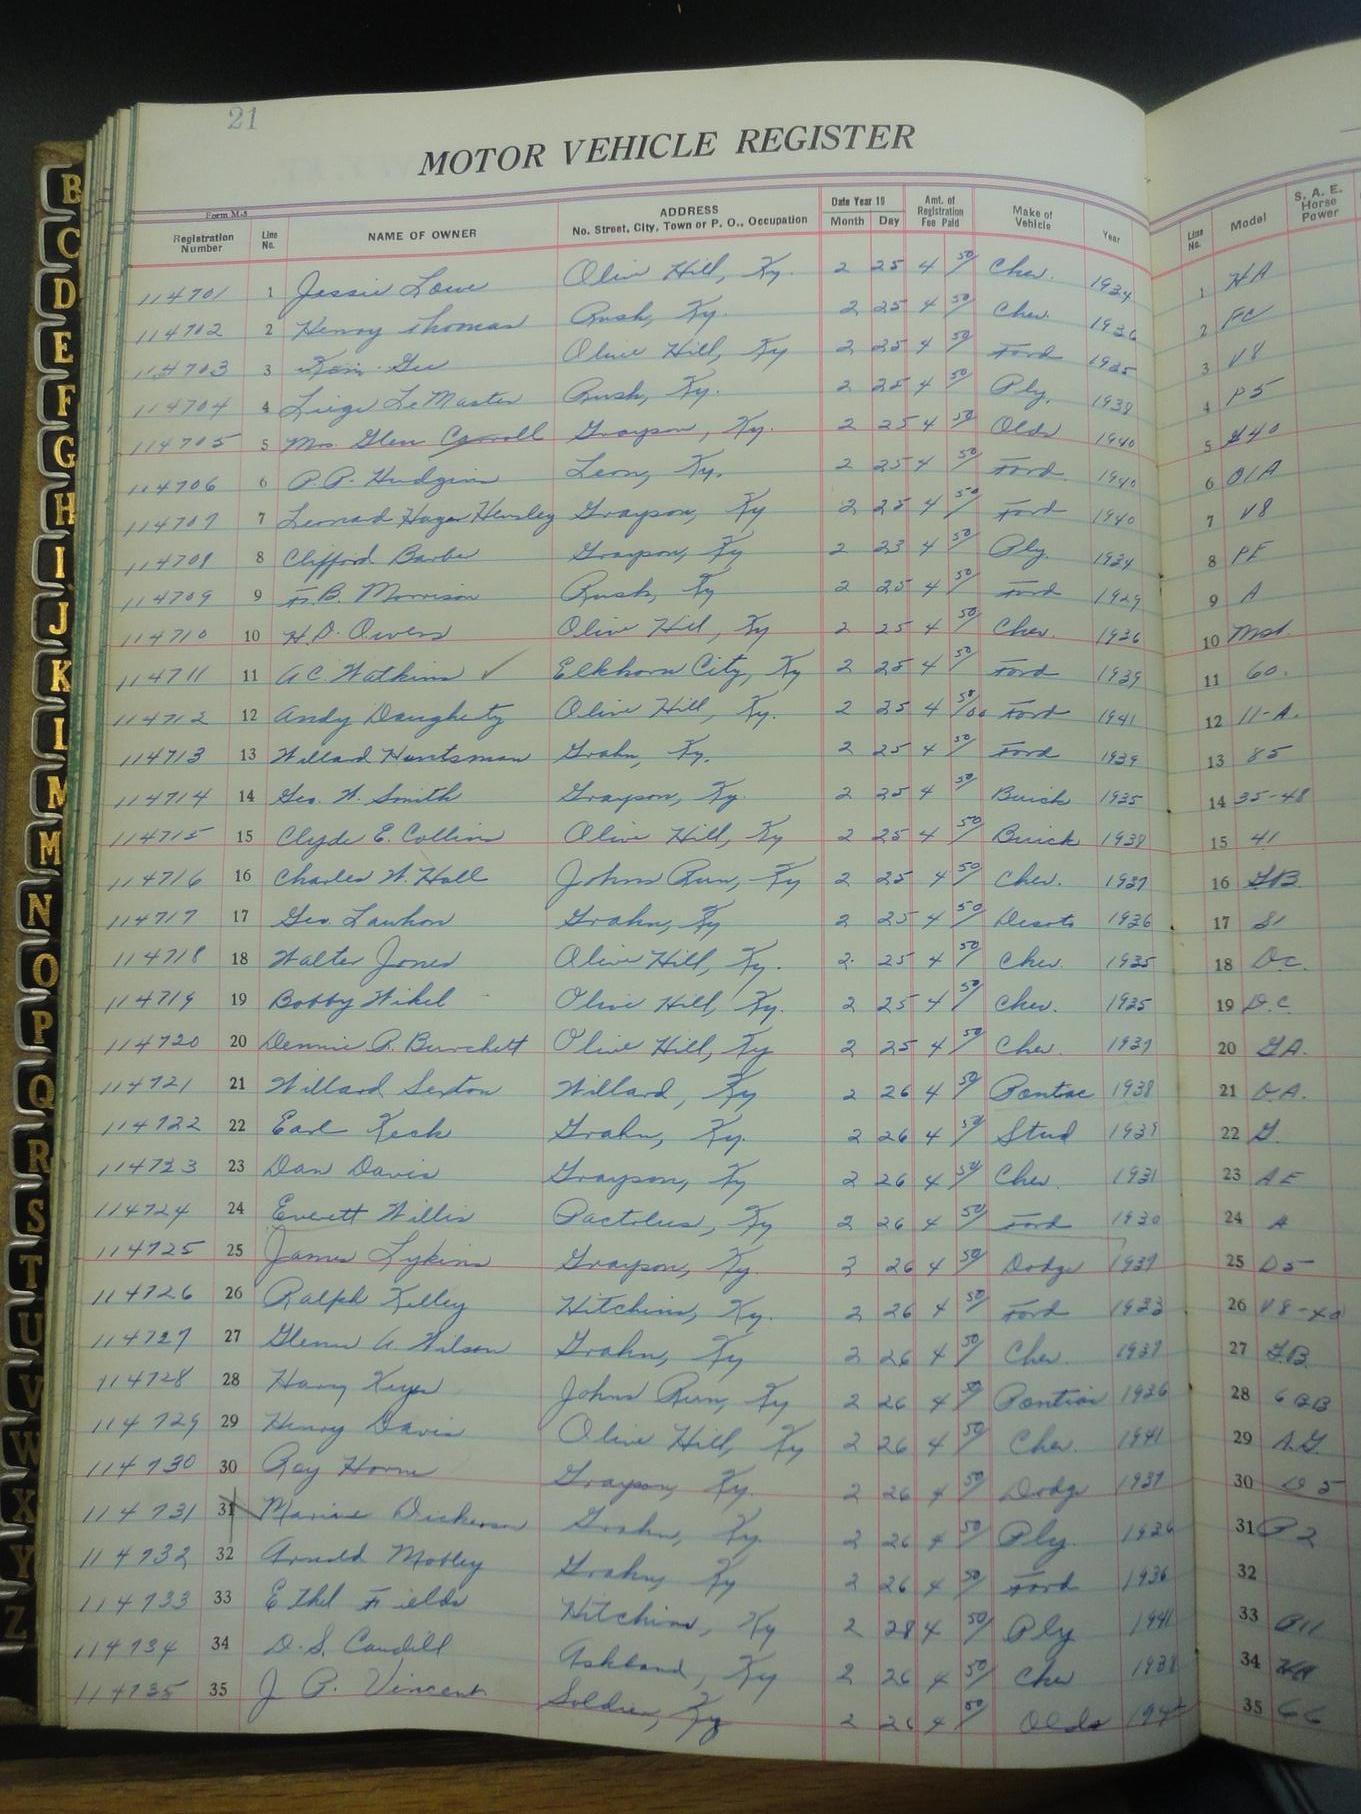 21
MOTOR VEHICLE REGISTER
Form M-5
Registration Number Line No. NAME OF OWNER ADDRESS No. Street, City, Town or P. O., Occupation Date Year 19 Month Day Amt. of Registration Fee Paid Make of Vehicle Year Line No. Model S. A. E. Horse Power
114701 1 Jessie Lowe Olive Hill, Ky. 2 25 4 50/ Chev. 1934 1 HA
114702 2 Henry Thomas Rush, Ky. 2 25 4 50/ Chev. 1936 2 FC
114703 3 Olive Hill, Ky 2 25 4 50/ Ford 1935 3 V8
114704 4 Liege LeMaster Rush, Ky. 2 25 4 50/ Ply. 1938 4 P5
114705 5 Mrs. Glen Carroll Grayson, Ky. 2 25 4 50/ Olds 1940 5
114706 6 P.P. Hudgins Leon, Ky. 2 25 4 50/ Ford 1940 6 01A
114707 7 Leonad Hager Hensley Grayson, Ky 2 25 4 50/ Ford 1940 7 V8
114708 8 Clifford Barber Grayson, Ky 2 23 4 50/ Ply. 1934 8 PE
114709 9 B. Morrison Rush, Ky 2 25 4 50/ Ford 1929 9 A
114710 10 H.D. Owens Olive Hill, Ky 2 25 4 50/ Chev. 1936 10
114711 11 A.C. Watkins ✓ Elkhorn City, Ky 2 25 4 50/ Ford 1939 11 60.
114712 12 Andy Daugherty Olive Hill, Ky. 2 25 4 50/00 Ford 1941 12 11-A.
114713 13 Willard Huntsman Grahn, Ky. 2 25 4 50/ Ford 1939 13 85
114714 14 Geo. W. Smith Grayson, Ky. 2 25 4 50/ Buick 1935 14 35-48
114715 15 Clyde E. Collins Olive Hill, Ky 2 25 4 50/ Buick 1938 15 41
114716 16 Charles W. Hall Johns Run, Ky 2 25 4 50/ Chev. 1937 16 GB
114717 17 Geo. Lawhon Grahn, Ky 2 25 4 50/ Desoto 1936 17 S1
114718 18 Walter Jones Olive Hill, Ky. 2 25 4 50/ Chev. 1935 18 D.C.
114719 19 Bobby Wikel Olive Hill, Ky. 2 25 4 50/ Chev. 1935 19 D.C.
114720 20 Dennie R. Burchett Olive Hill, Ky 2 25 4 50/ Chev. 1937 20 GA.
114721 21 Willard Sexton Willard, Ky 2 26 4 50/ Pontiac 1938 21 D.A.
114722 22 Earl Keck Grahn, Ky. 2 26 4 50/ Stud 1939 22 G.
114723 23 Dan Davis Grayson, Ky 2 26 4 50/ Chev. 1931 23 AE
114724 24 Everett Willis Pactolus, Ky 2 26 4 50/ Ford 1930 24 A
114725 25 James Lykins Grayson, Ky. 2 26 4 50/ Dodge 1937 25 D5
114726 26 Ralph Kelley Hitchins, Ky. 2 26 4 50/ Ford 1933 26 V8-40
114727 27 Glenn A. Wilson Grahn, Ky 2 26 4 50/ Chev. 1937 27 GB
114728 28 Harry Keyes Johns Run, Ky 2 26 4 50/ Pontiac 1936 28 6BB
114729 29 Henry Davis Olive Hill, Ky 2 26 4 50/ Chev. 1941 29 A.G.
114730 30 Roy Horne Grayson, Ky. 2 26 4 50/ Dodge 1937 30 D5
114731 31 Marine Dickerson Grahn, Ky. 2 26 4 50/ Ply. 1936 31 P2
114732 32 Arnold Mobley Grahn, Ky 2 26 4 50/ Ford 1936 32
114733 33 Ethel Fields Hitchins, Ky 2 28 4 50/ Ply 1941 33 P11
114734 34 D.S. Caudill Ashland, Ky 2 26 4 50/ Chev 1938 34
114735 35 J. P. Vincent Soldier, Ky 2 26 4 50/ Olds 35
B
C
D
E
F
G
H
I
J
K
L
M
M
N
O
P
Q
R
S
T
U
V
W
X
Y
Z